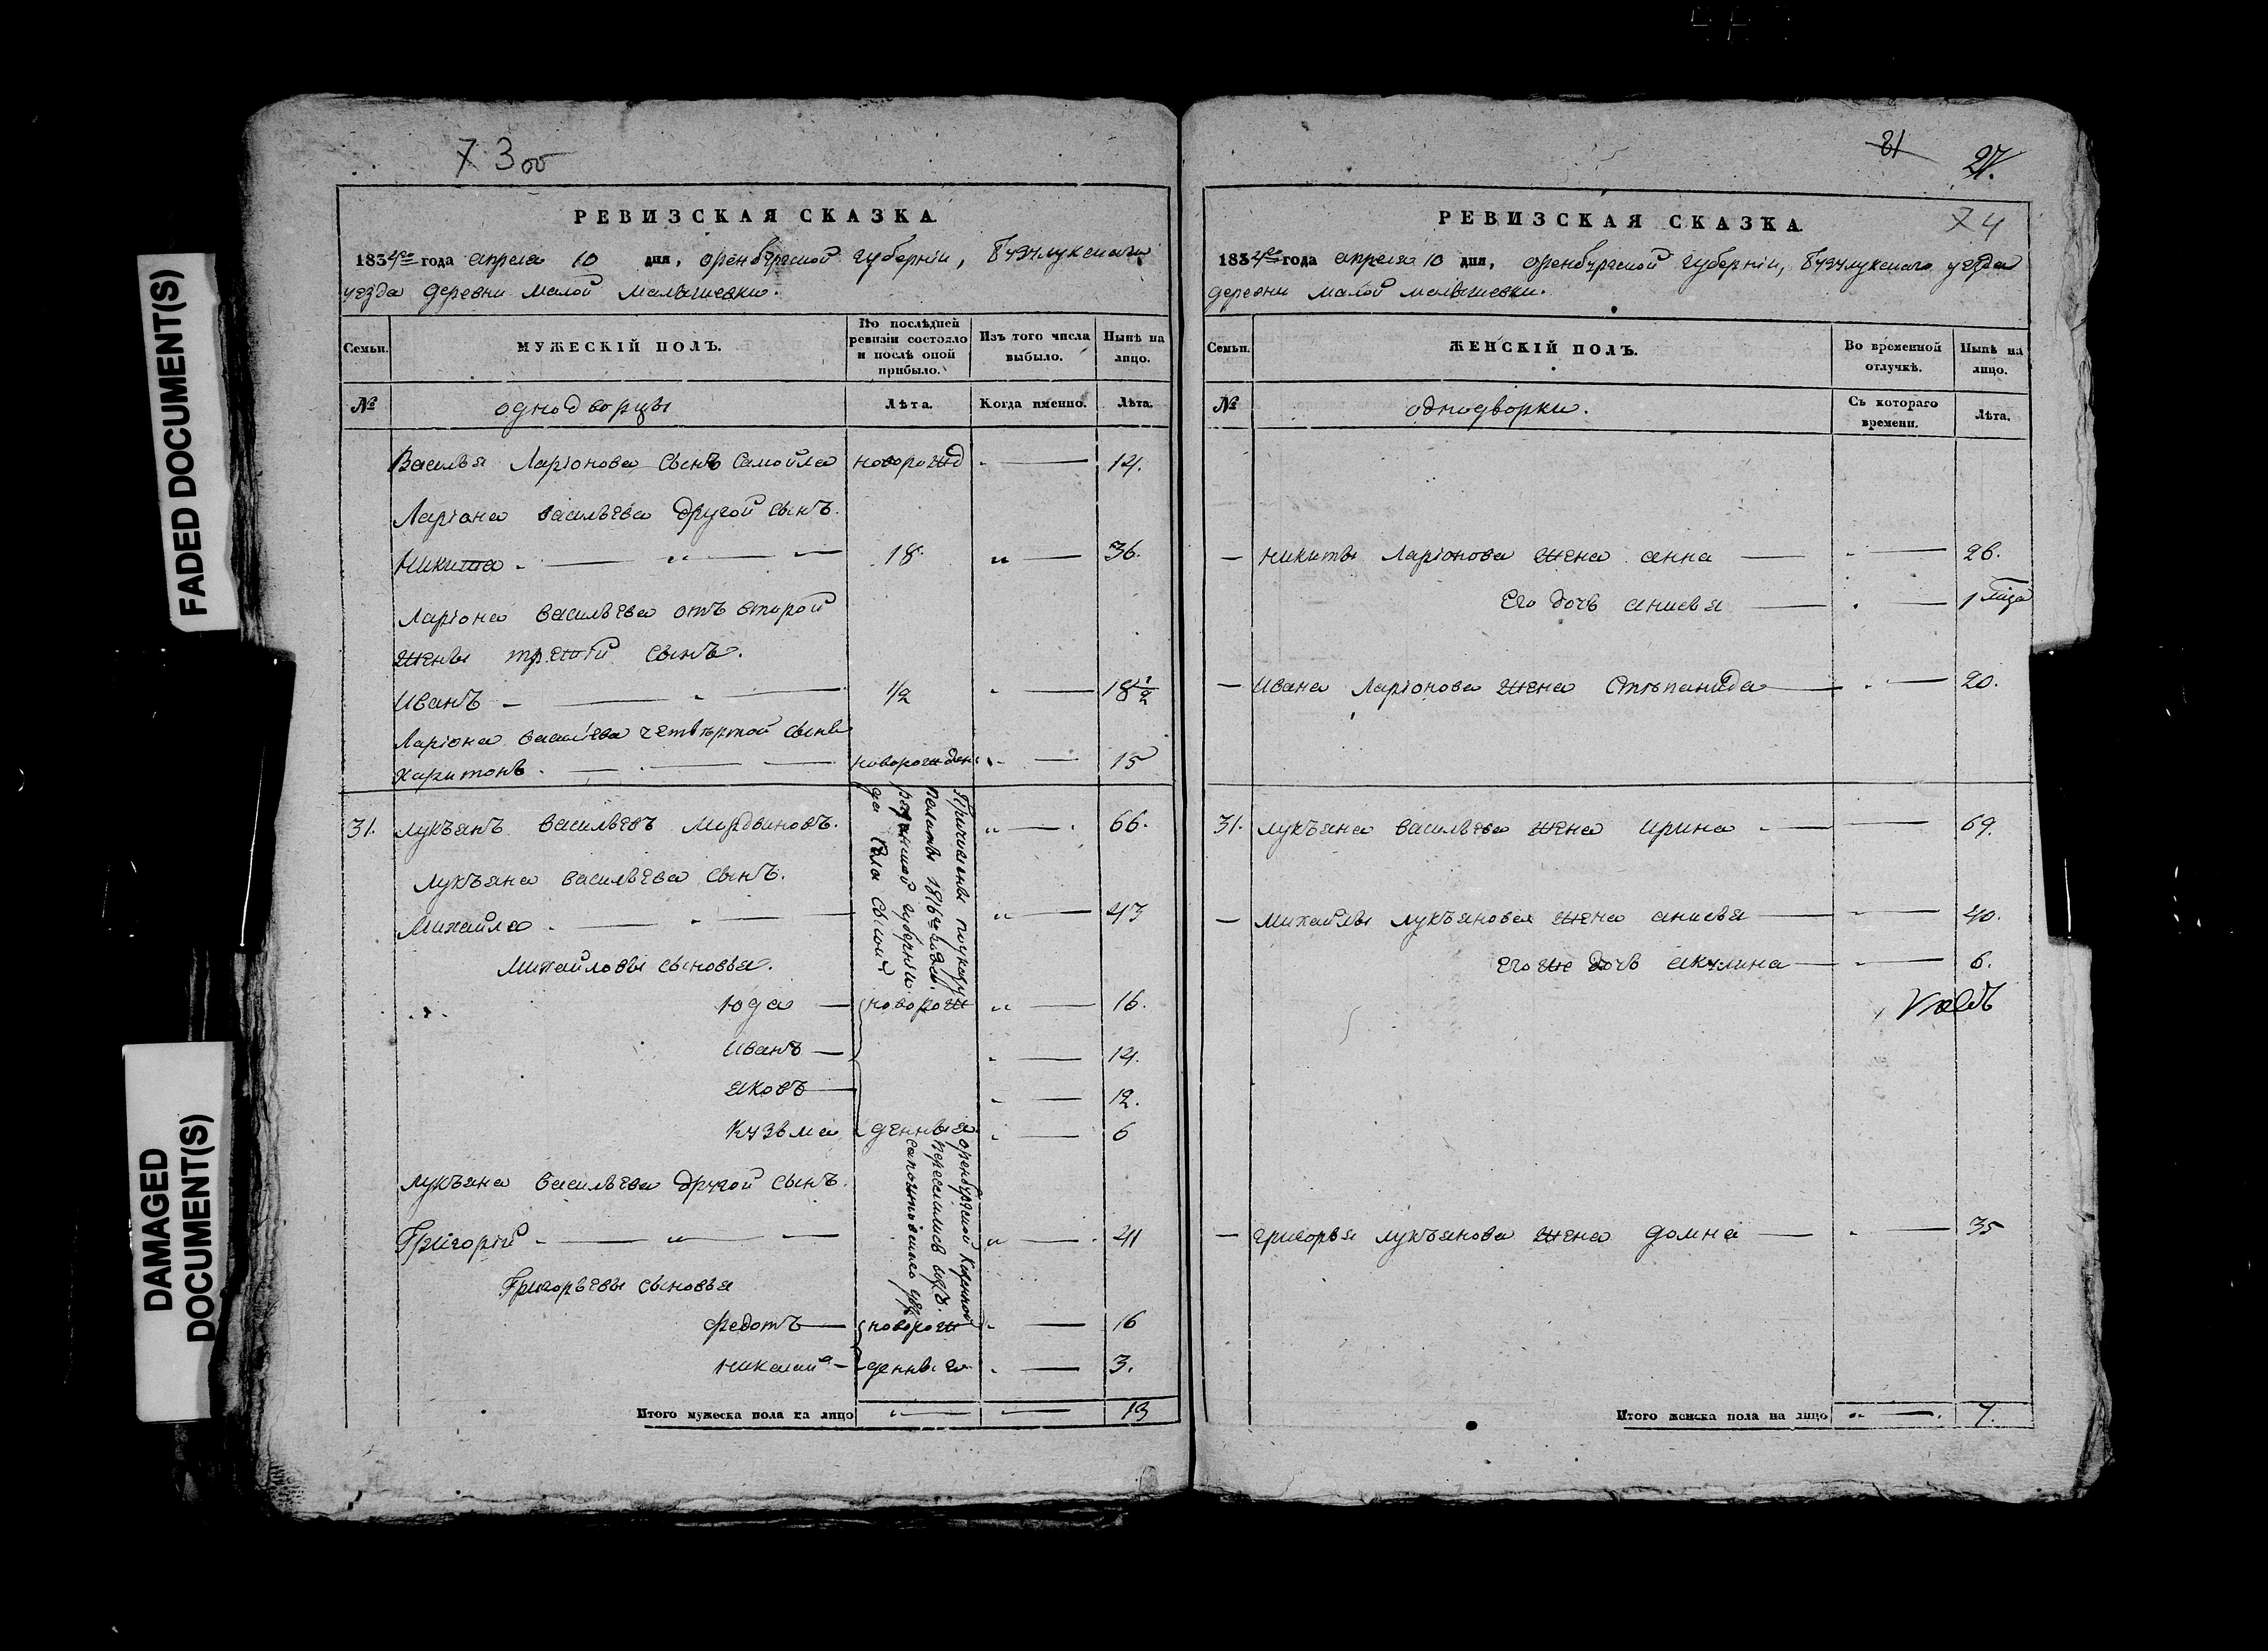 FADED DOCUMENT(S)
DAMAGED
DOCUMENT(S)
7 3 об
РЕВИЗСКАЯ СКАЗКА.
1834го года апреля 10 дня, оренбургской губернии, Бузулукскаго
уезда деревни малой малышевки.
Семьи.
МУЖЕСКІЙ ПОЛЪ.
По послѣдней
ревизіи состояло
и послѣ оной
прибыло.
Изъ того числа
выбыло.
Нынѣ на
лицо.
№
однодворцы
Лѣта.
Когда именно.
Лѣта.
Василья Ларіонова сынъ Самойла новорожд 14.
Ларіона васильева другой сынъ.
Никита 18 36.
Ларіона васильева отъ второй
жены третій сынъ.
Иванъ 1/2 18 1/2
Ларіона васильева четвертой сынъ
харитонъ новорожден 15
31. лукъянъ васильевъ Мордвиновъ. 66.
лукъяна васильева сынъ.
Михайла 43
Михайловы сыновья.
Юда новорож 16.
Иванъ 14.
яковъ 12.
Кузьма денныя 6
лукъяна васильева другой сынъ.
Григорій 41
Григорьевы сыновья
Федотъ новорож 16
николай денныя 3.
Причислены по указу оренбургской казенной
палаты 1816го года. переселились
губерніи.
села
Итого мужеска пола на лицо 13
81
27.
74
РЕВИЗСКАЯ СКАЗКА.
1834го года апреля 10 дня, оренбургской губерніи, бузулукскаго уезда
деревни малой малышевки.
Семьи.
ЖЕНСКІЙ ПОЛЪ.
Во временной
отлучкѣ.
Нынѣ на
лицо.
№
однодворки.
Съ котораго
времени.
Лѣта.
никиты ларіонова жена анна 26.
Его дочь анисья 1
Ивана ларіонова жена Степанида 20.
31. лукъяна васильева жена ирина 69.
михайлы лукъянова жена анисья 40.
его же дочь акулина 6.
григорья лукъянова жена домна 35
Итого женска пола на лицо 7.